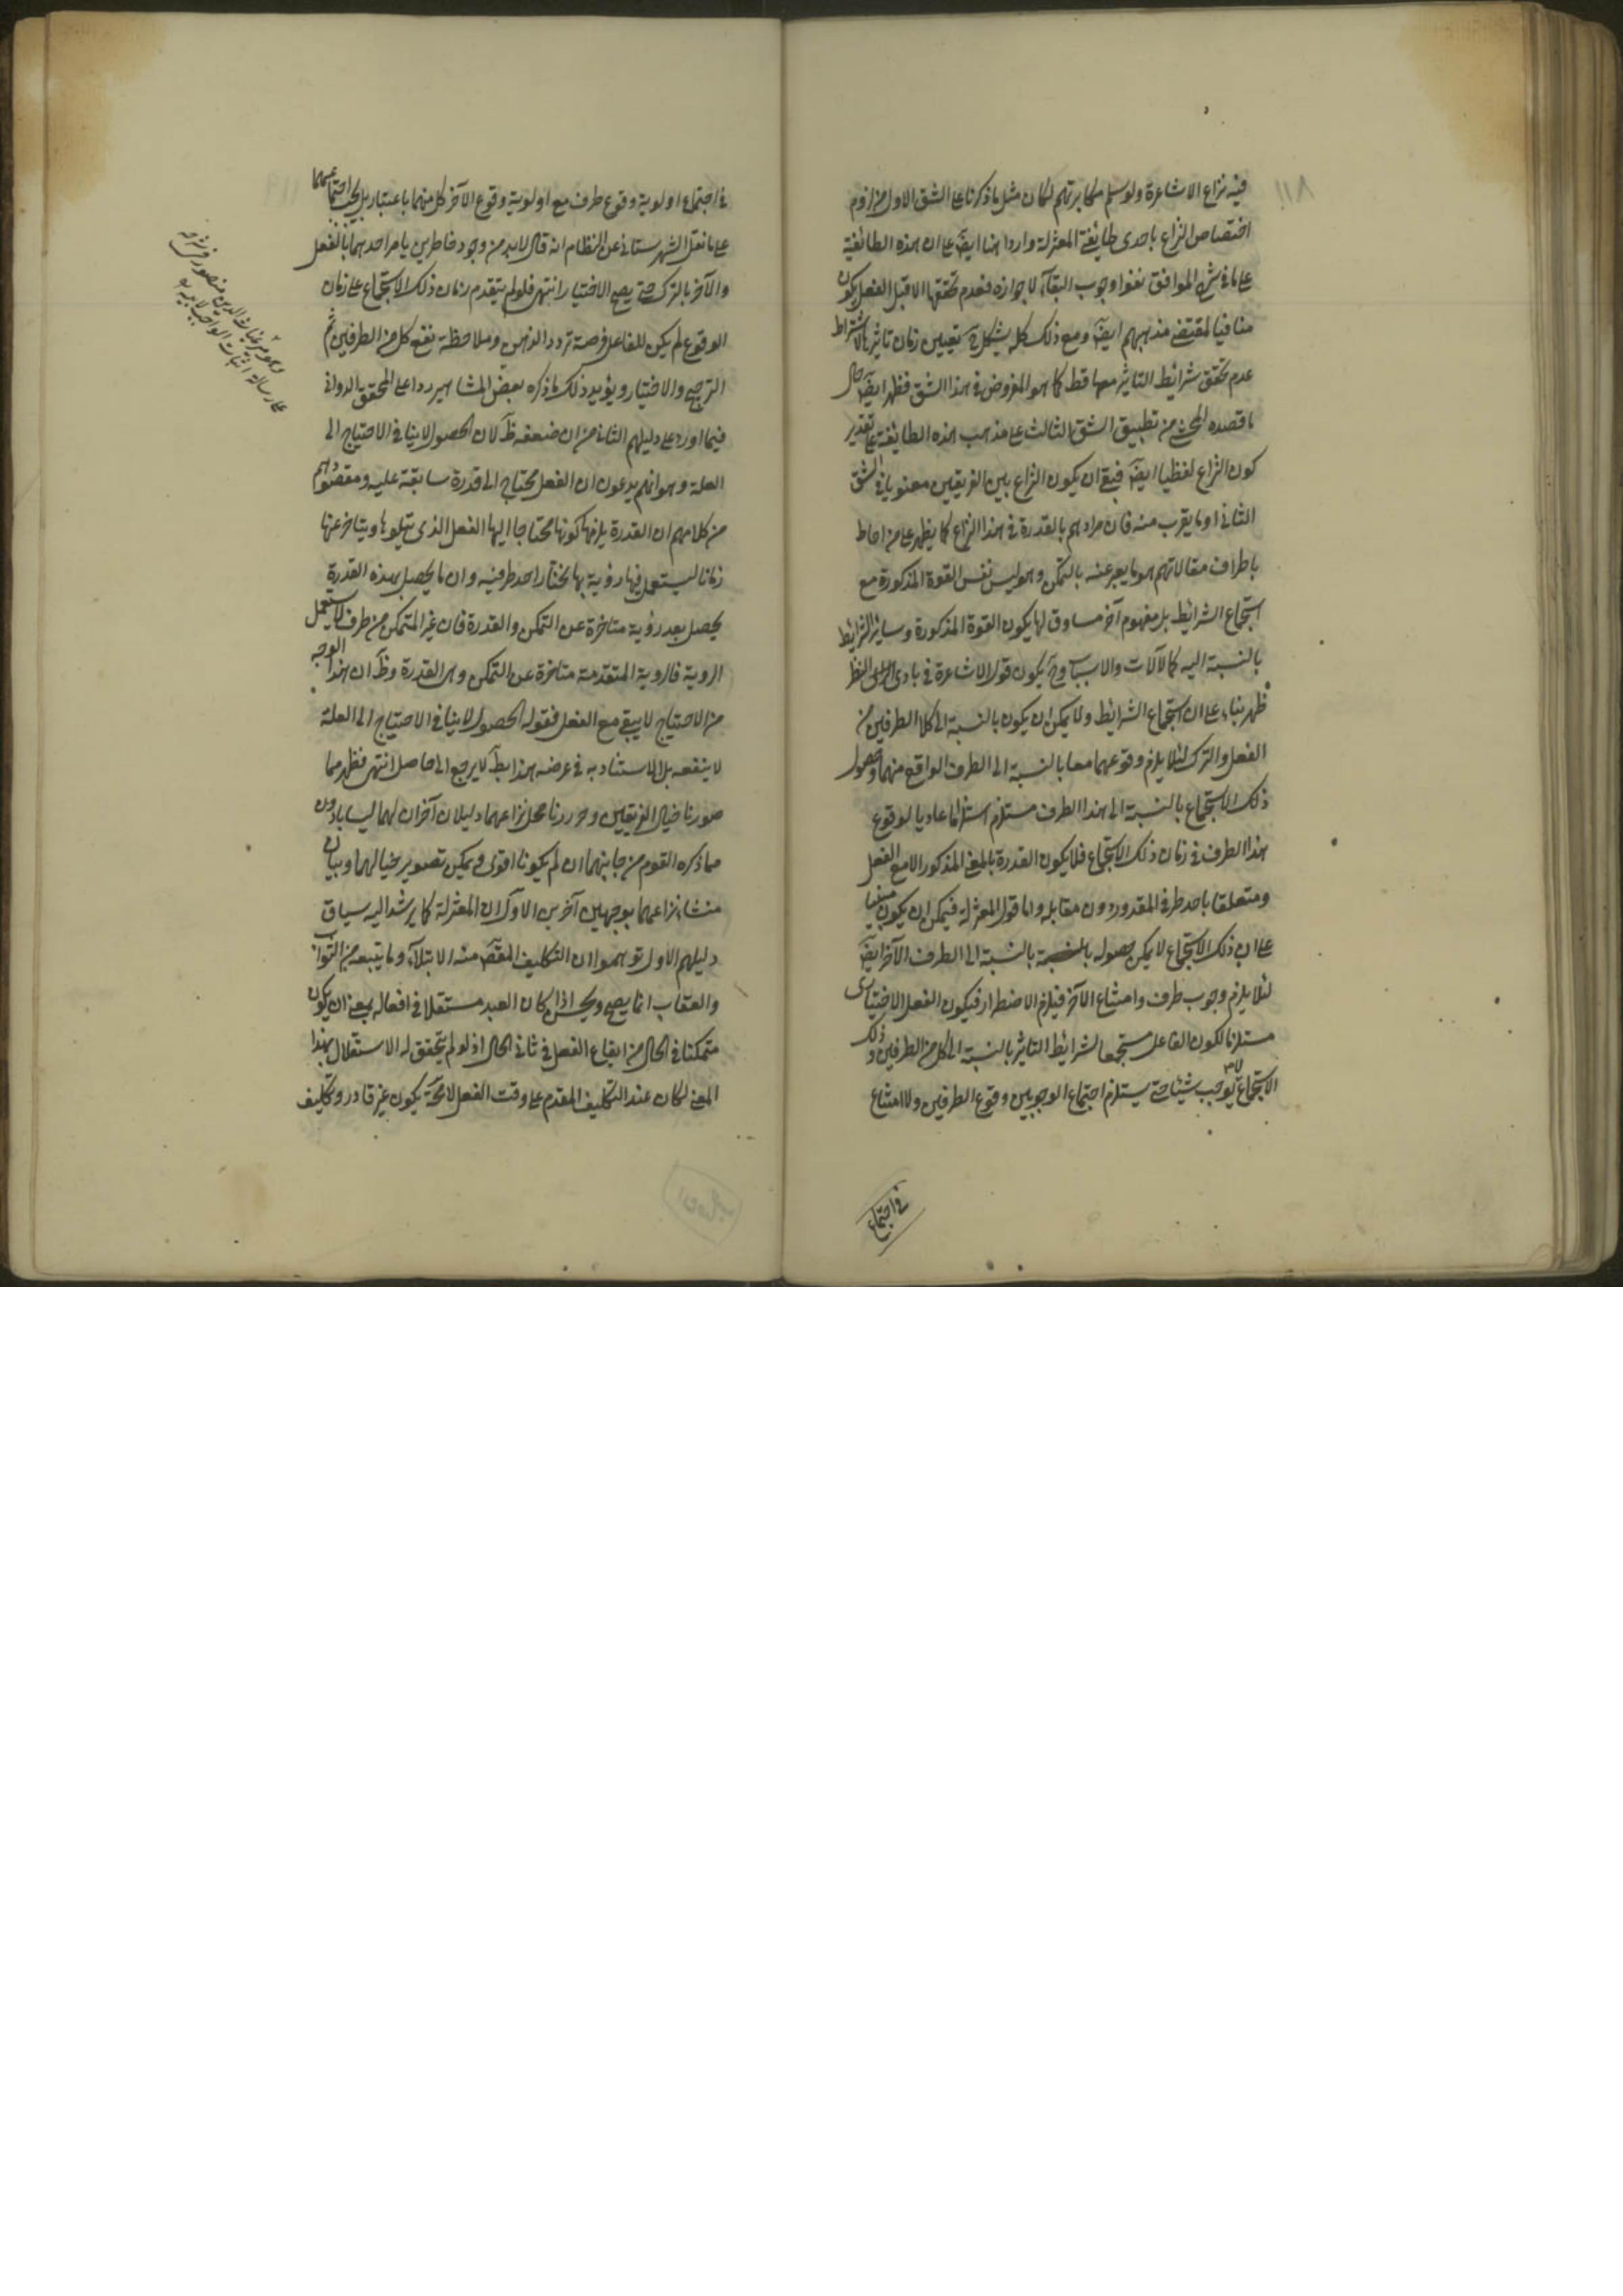 فيه نزاع الاشاعرة ولو سلم مكابرتهم لكان مثل ما ذكرنا على الشق الاول من لزوم
اختصاص النزاع باحدى طايفتى المعتزلة واردا هنا ايضا على ان هذه الطائفة
على ما فى شرح المواقف نفوا وجوب البقاء لا جوازه فعدم تحققها الا قبل الفعل يكون
منافيا لمقتضى مذهبهم ايضا ومع ذلك كله يشكل ح تعيين زمان تاثيرها لاشتراط
عدم تحقق شرائط التاثير معها قط كما هو المفروض فى هذا الشق فظهر ايضا حال
ما قصده المحشى من تطبيق الشق الثالث على مذهب هذه الطايفة على تقدير
كون النزاع لفظيا ايضا فبقى ان يكون النزاع بين الفريقين معنويا فى الشق
الثانى او ما يقرب منه فان مرادهم بالقدرة فى هذا النزاع كما يظهر على من احاط
باطراف مقالاتهم هو ما يعبر عنه بالتمكن وهو ليس نفس القوة المذكورة مع
استجماع الشرائط بل مفهوم آخر مساوق لها يكون القوة المذكورة وساير الشرايط
بالنسبة اليه كالآلات والاسباب وح يكون قول الاشاعرة فى بادى النظر
ظهر بناء على ان استجماع الشرائط ولا يمكن ان يكون بالنسبة الى كلا الطرفين من
الفعل والترك لئلا يلزم وقوعهما معا بالنسبة الى الطرف الواقع منهما وحصول
ذلك الاستجماع بالنسبة الى هذا الطرف مستلزم استلزاما عاديا لوقوع
هذا الطرف فى زمان ذلك الاستجماع فلا يكون القدرة بالمعنى المذكور الا مع الفعل
ومتعلقا باحد طرفى المقدور دون مقابله واما قول المعتزلة فيمكن ان يكون مبنيا
على ان ذلك الاستجماع لا يمكن حصوله بالنسبة الى الطرف الآخر ايضا
لئلا يلزم وجوب طرف وامتناع الآخر فيلزم الاضطرار فيكون الفعل الاختيارى
مستلزما لكون الفاعل مستجمعا لشرائط التاثير بالنسبة الى كل من الطرفين وذلك
الاستجماع لا يوجب شيئا حتى يستلزم اجتماع الوجوبين وقوع الطرفين ولا امتناع
فى اجتماع
فى اجتماع اولوية وقوع طرف مع اولوية وقوع الآخر كل منهما باعتبار بل يجب اجتماعهما
على ما نقل الشهرستانى عن النظام انه قال لابد من وجود خاطرين يامر احدهما بالفعل
والآخر بالترك حتى يصح الاختيار انتهى فلو لم يتقدم زمان ذلك الاستجماع على زمان
الوقوع لم يكن للفاعل فرصة تردد الذهن وملاحظة نفع كل من الطرفين ثم
الترجيح والاختيار ويؤيد ذلك ما ذكره بعض المشاهير ردا على المحقق الدوانى
فيما اورد على دليلهم الثانى من ان ضعفه ظ لان الحصول لا ينافى الاحتياج الى
العلة وهو انهم يدعون ان الفعل محتاج الى قدرة سابقة عليه ومقصودهم
من كلامهم ان القدرة يلزمها كونها محتاجا اليها الفعل الذى يتلوها ويتاخر عنها
زمانا ليستعمل فيها روية بها يختار احد طرفيه وان ما يحصل بهذه القدرة
يحصل بعد روية متاخرة عن التمكن والقدرة فان غير المتمكن من طرف لا يستعمل
الروية فالروية المتقدمة متاخرة عن التمكن وهى القدرة وظ ان هذا الوجه
من الاحتياج لا يبقى مع الفعل فقوله الحصول لا ينافى الاحتياج الى العلة
لا ينفعه بل الاستناد به فى غرضه هذا لا يرجع الى حاصل انتهى فظهر مما
صورنا خيال الفريقين وحررنا محل نزاعهما دليلان آخران لهما ليسا بادون
مما ذكره القوم من جانبهما ان لم يكونا اقوى ويمكن تصوير خيالهما وبيان
منشاء نزاعهما بوجهين آخرين الاول ان المعتزلة كما يرشد اليه سياق
دليلهم الاول توهموا ان التكليف المقصود منه الابتلاء وما يتبعه من الثواب
والعقاب انما يصح ويحسن اذا كان العبد مستقلا فى افعاله بمعنى ان يكون
متمكنا فى الحال من ايقاع الفعل فى ثانى الحال اذ لو لم يتحقق له الاستقلال بهذا
المعنى لكان عند التكليف المقدم على وقت الفعل لا محالة يكون غير قادر وتكليف
وهو مير غياث الدين منصور فى شرحه
على رسالة اثبات الواجب لابيه